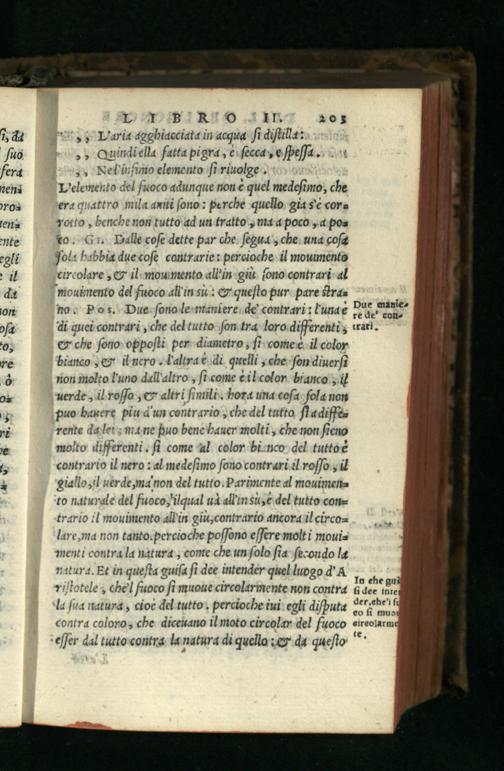 LIBRO II. 203
,, L'aria agghiacciata in acqua si distilla:
,, Quindi ella fatta pigra, è secca, e spessa.
,, Nel'infimo elemento si riuolge.
L'elemento del fuoco adunque non è quel medesimo, che
era quattro mila anni sono: perche quello gia s'è cor=
rotto, benche non tutto ad un tratto, ma a poco, a po=
co. GI. Dalle cose dette par che segua, che una cosa
sola habbia due cose contrarie: percioche il mouimento
circolare, & il mouimento all'in giù sono contrari al
mouimento del fuoco all'in sù: & questo pur pare stra=
no. POS. Due sono le maniere de' contrari: l'una è
di quei contrari, che del tutto son tra loro differenti,
& che sono opposti per diametro, si come è il color
bianco, & il nero. l'altra è di quelli, che son diuersi
non molto l'uno dall'altro, si come è il color bianco, il
uerde, il rosso, & altri simili. hora una cosa sola non
puo hauere piu d'un contrario, che del tutto sia diffe=
rente da lei: ma ne puo bene hauer molti, che non sieno
molto differenti. si come al color bianco del tutto è
contrario il nero: al medesimo sono contrari il rosso, il
giallo, il uerde, ma non del tutto. Parimente al mouimen=
to naturale del fuoco, ilqual uà all'in sù, è del tutto con=
trario il mouimento all'in giù, contrario ancora il circo=
lare, ma non tanto. percioche possono essere molti moui=
menti contra la natura, come che un solo sia secondo la
natura. Et in questa guisa si dee intender quel luogo d'A
ristotele, che'l fuoco si muoue circolarmente non contra
la sua natura, cioè del tutto. percioche iui egli disputa
contra coloro, che diceuano il moto circolar del fuoco
esser dal tutto contra la natura di quello: & da questo
Due manie=
re de' con=
trari.
In che gui
si dee inten
der, che'l fu
co si muo
circolarme
te.